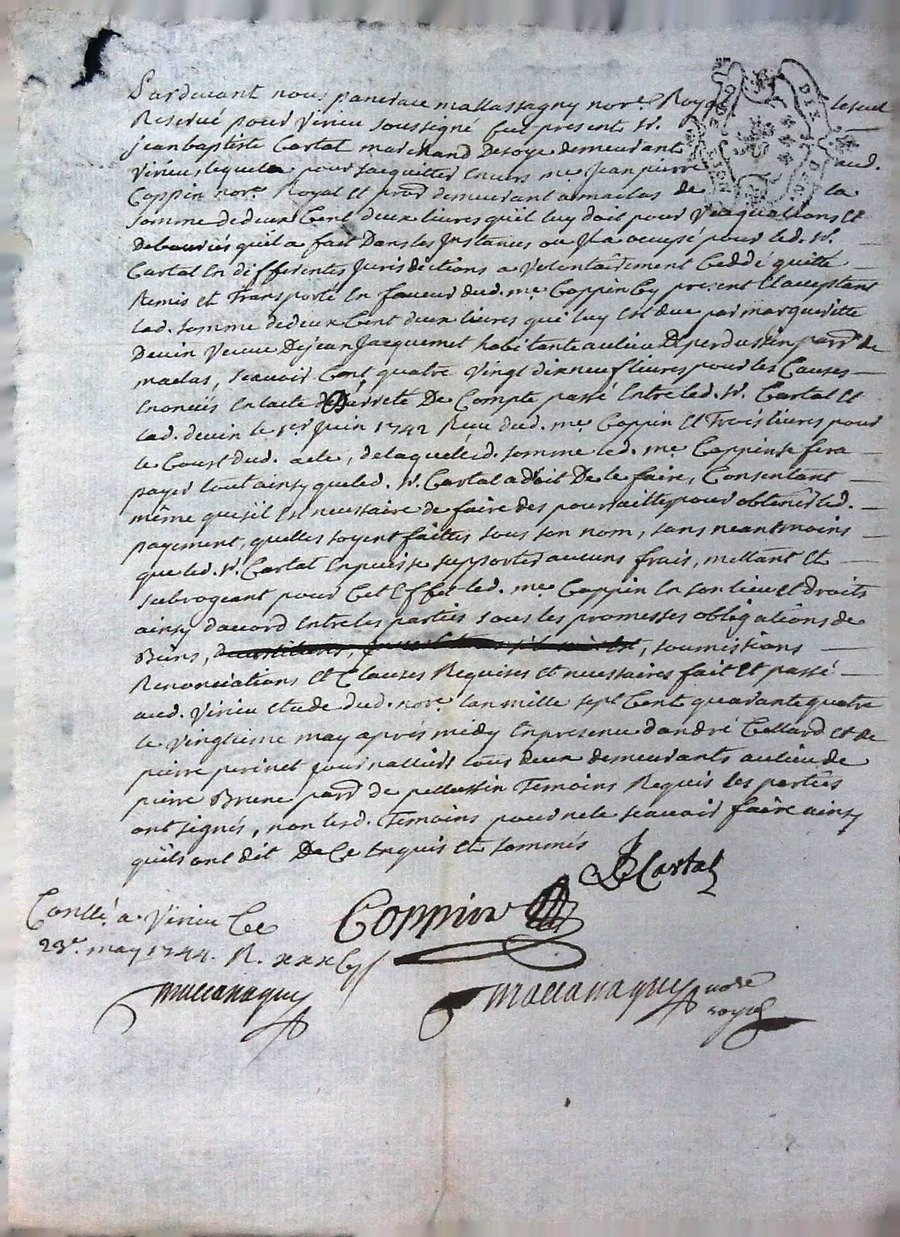 Pardevant nous pancrace massanaguy nore. Royal le seul
Reservé pour Virieu soussigné fut present Sr.
jean baptiste Cartal marchand De soye demeurant aud.
Virieu lequel pour sacquitter Envers me. jean pierre
Coppin nore. Royal et demeurant a maclas de la
somme de deux Cent deux livres qu'il luy doit pour Vaquations et
Deboursés qu'il a fait Dans les Instances ou Il a occupé pour led. Sr.
Cartal En differentes Jurisdictions a Volontairement Ceddé quitte
Remis et Transporté En faveur dud. me. Coppin Cy present Et acceptant
lad. somme de deux Cent deux livres qui luy Est due par marguerite
Devin Veuve De jean Jacquemet habitante au lieu De perdussin parr. de
maclas, scavoir Cent quatre Vingt dix neuf livres pour les Causes
Enoncées En lacte Darreté De Compte passé Entre led. Sr. Cartal Et
lad. devin le 1er. Juin 1742 Receu dud. me. Coppin Et Trois livres pour
le Coust dud. acte, de laquelle d. somme led. me Coppin se fera
payer tout ainsy que led. Sr. Cartal a droit De le faire, Consentant
même que s'il Est necessaire de faire des poursuittes pour obtenir led.
payement, quelles soyent faittes sous son nom, sans neantmoins
que led. Sr. Cartal En puisse supporter aucuns frais, mettant Et
subrogeant pour Cet Effet led. me. Coppin En son lieu et droits
ainsy d'accord Entre les parties sous les promesses obligations de
Biens, soumissions
Renonciations Et Clauses Requises et necessaires fait Et passé
aud. Virieu Etude dud. nore. lan mille sept Cent quarante quatre
le Vingtieme may après midy En presence d'andré Cellard Et de
pierre perinet journalliers tous deux demeurants au lieu de
pierre Brune parr de pellussin Temoins Requis les parties
ont signés, non lesd. Temoins pour ne le scavoir faire ainsy
qu'ils ont dit De Ce Enquis Et sommés
JB Cartal
Conllé. a Virieu Ce
Coppin
23e. may 1744. R.
massanaguy
massanaguy nore
royal